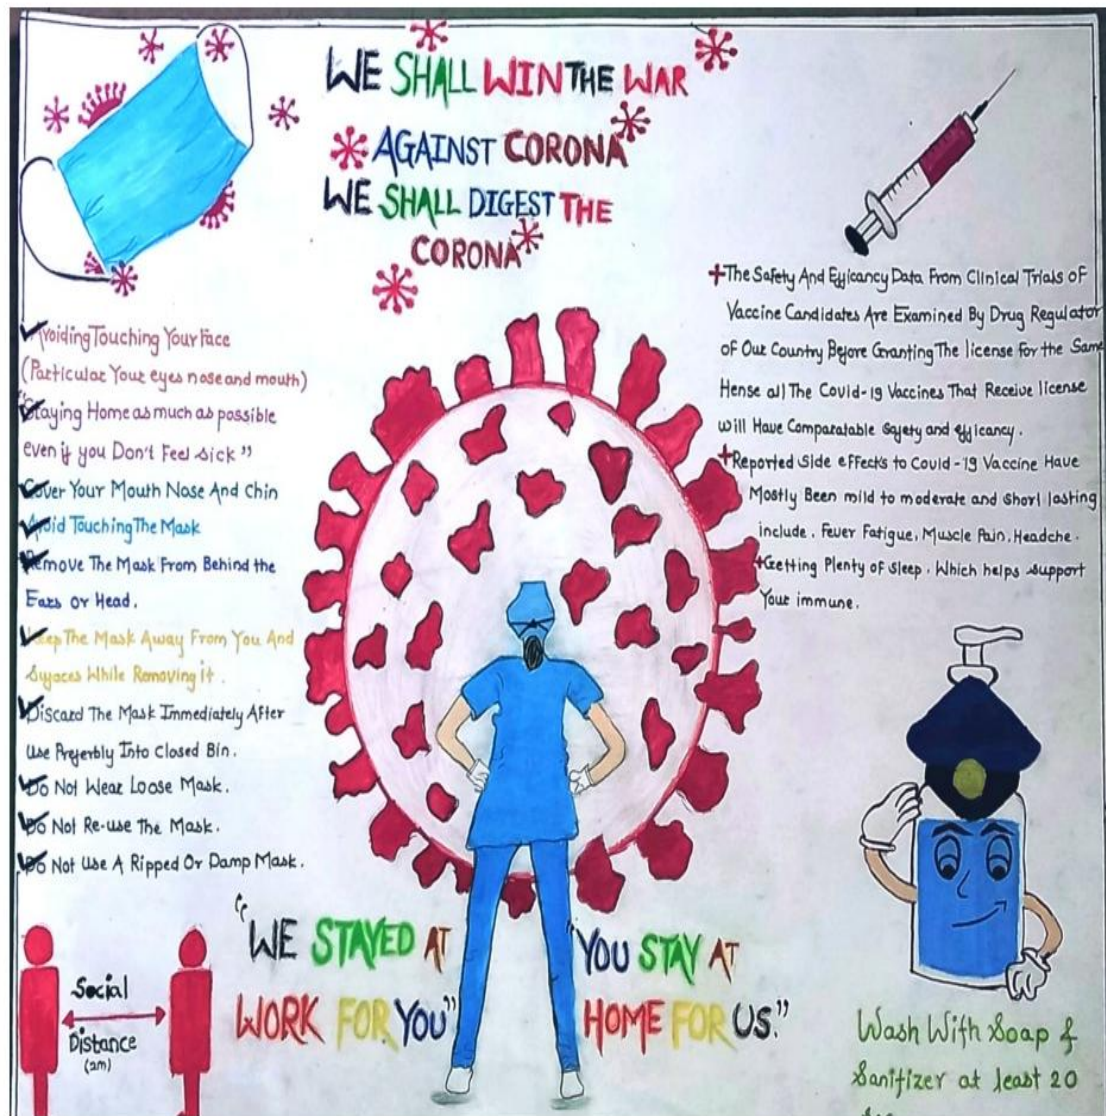 WE SHALL WIN THE WAR
AGAINST CORONA
WE SHALL DIGEST THE
CORONA
Avoiding Touching Your Face
(Particular Your eyes nose and mouth)
"Staying Home as much as possible
even if you Don't Feel sick"
Cover Your Mouth Nose And Chin
Avoid Touching The Mask
Remove The Mask From Behind the
Ears or Head.
Keep The Mask Away From You And
Sufaces While Removing it.
Discard The Mask Immediately After
Use Preferbly Into Closed Bin.
Do Not Wear Loose Mask.
Do Not Re-use The Mask.
Do Not Use A Ripped Or Damp Mask.
+The Safety And Efficancy Data From Clinical Trials of
Vaccine Candidates Are Examined By Drug Regulator
of Our Country Before Granting The license For the Same
Hense all The Covid-19 Vaccines That Receive license
will Have Comparatable Safety and efficancy.
+Reported Side effects to Covid-19 Vaccine Have
Mostly Been mild to moderate and Short lasting
include. Fever Fatigue, Muscle Pain, Headche.
+Getting Plenty of Sleep. Which helps support
Your immune.
"WE STAYED AT
WORK FOR YOU"
"YOU STAY AT
HOME FOR US."
Social
Distance
(2m)
Wash With Soap &
Sanitizer at least 20